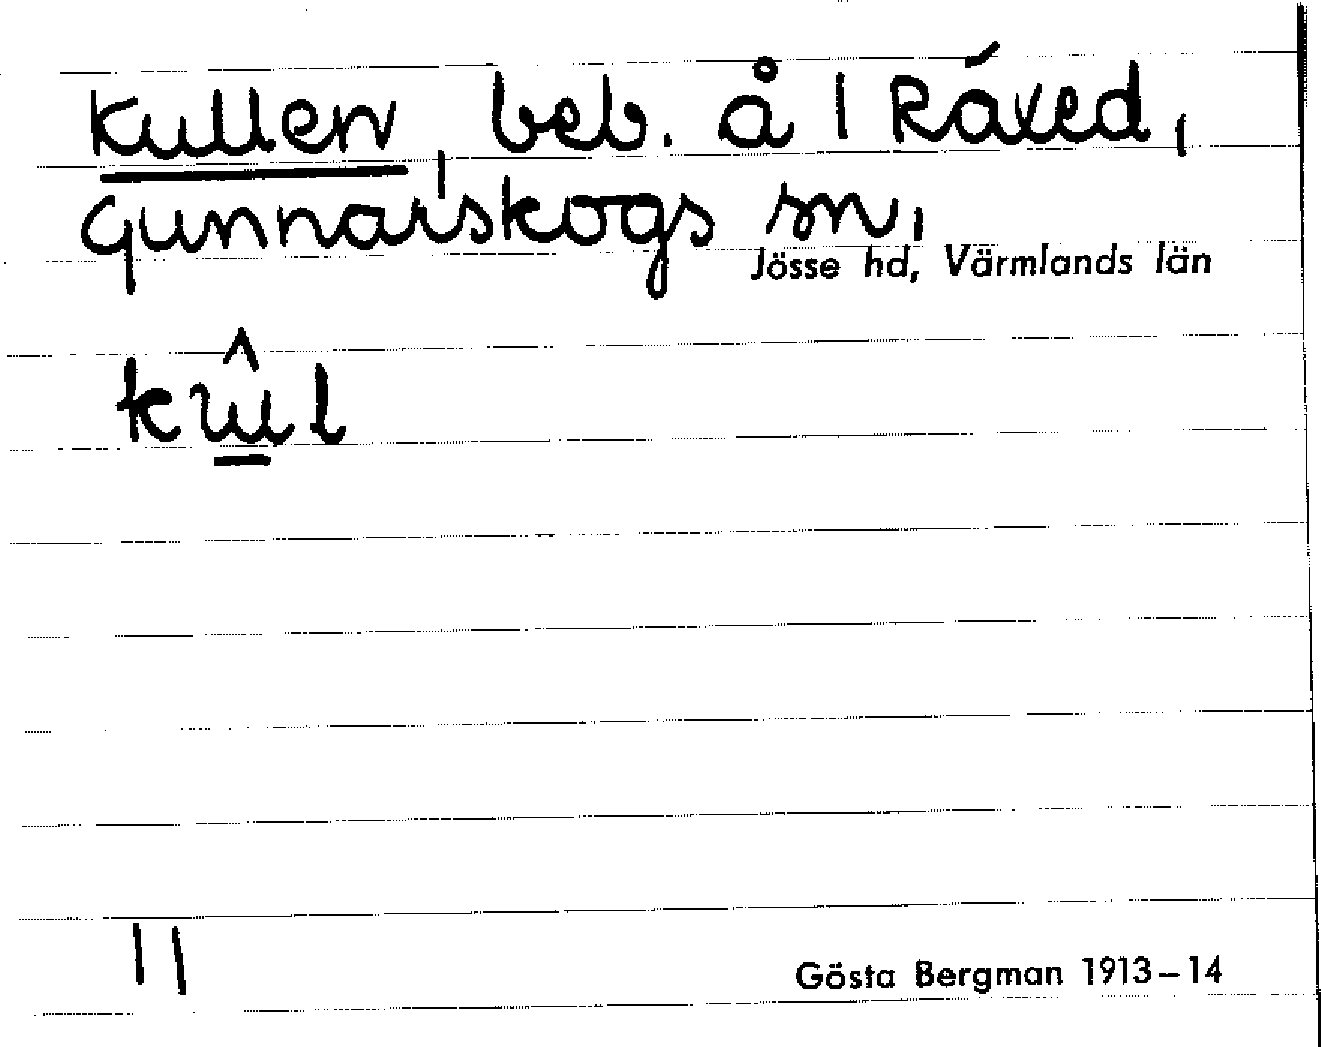 Kullen, beb. å 1 Råved,
Gunnarskogs sn,
Jösse hd, Värmlands län
kûl
11
Gösta Bergman 1913–14